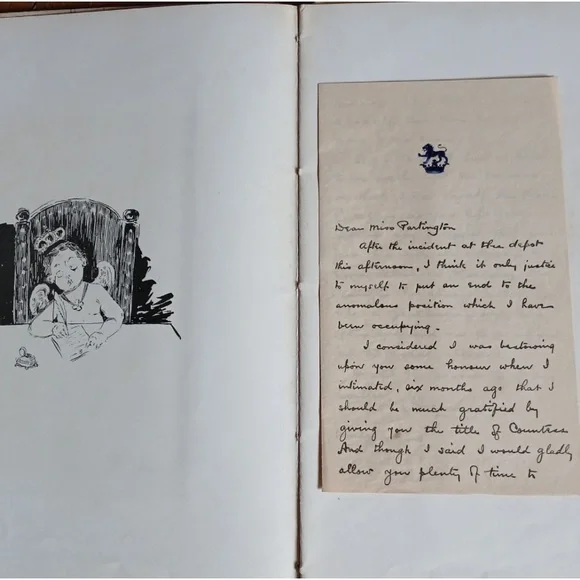 Dear Miss Partington
After the incident at the depot
this afternoon, I think it only justice
to myself to put an end to the
anomalous position which I have
been occupying.
I considered I was bestowing
upon you some honour when I
intimated, six months ago that I
should be much gratified by
giving you the title of Countess
And though I said I would gladly
allow you plenty of time to